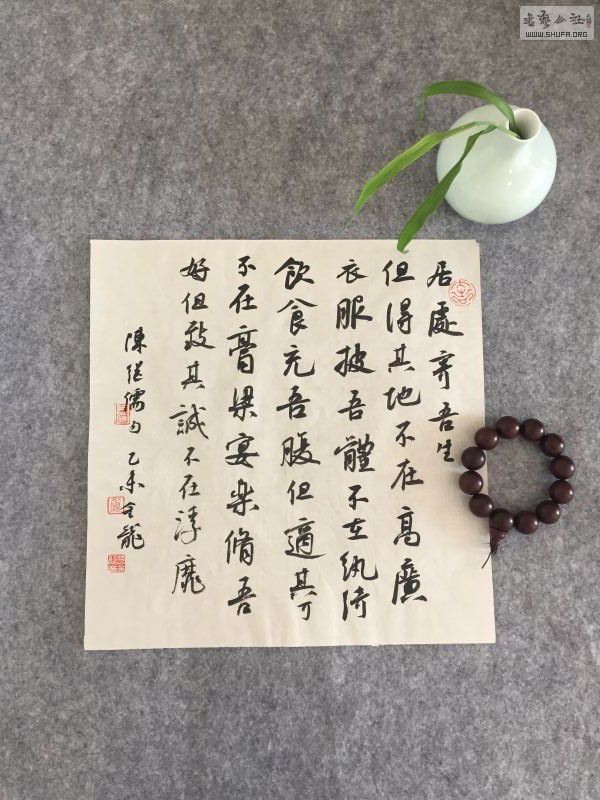 居處寄吾生
但得其地不在高廣
衣服披吾體不在紈綺
飲食充吾腹但適其可
不在膏粱宴樂脩吾
好但致其誠不在浮靡
陳继儒句 乙未全龍
书艺公社
WWW.SHUFA.ORG